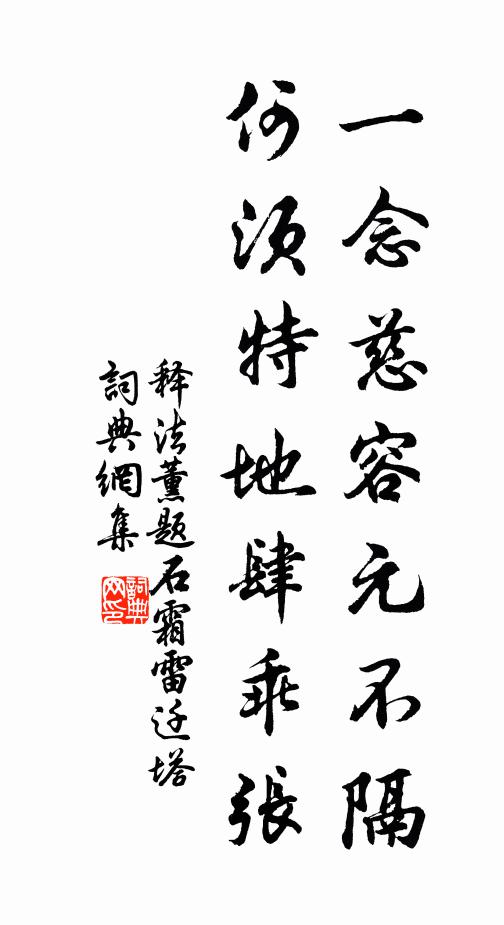 一念慈容元不隔
何須特地肆乖張
释法薰题石霜雷迁塔
詞典網集
詞典
网印